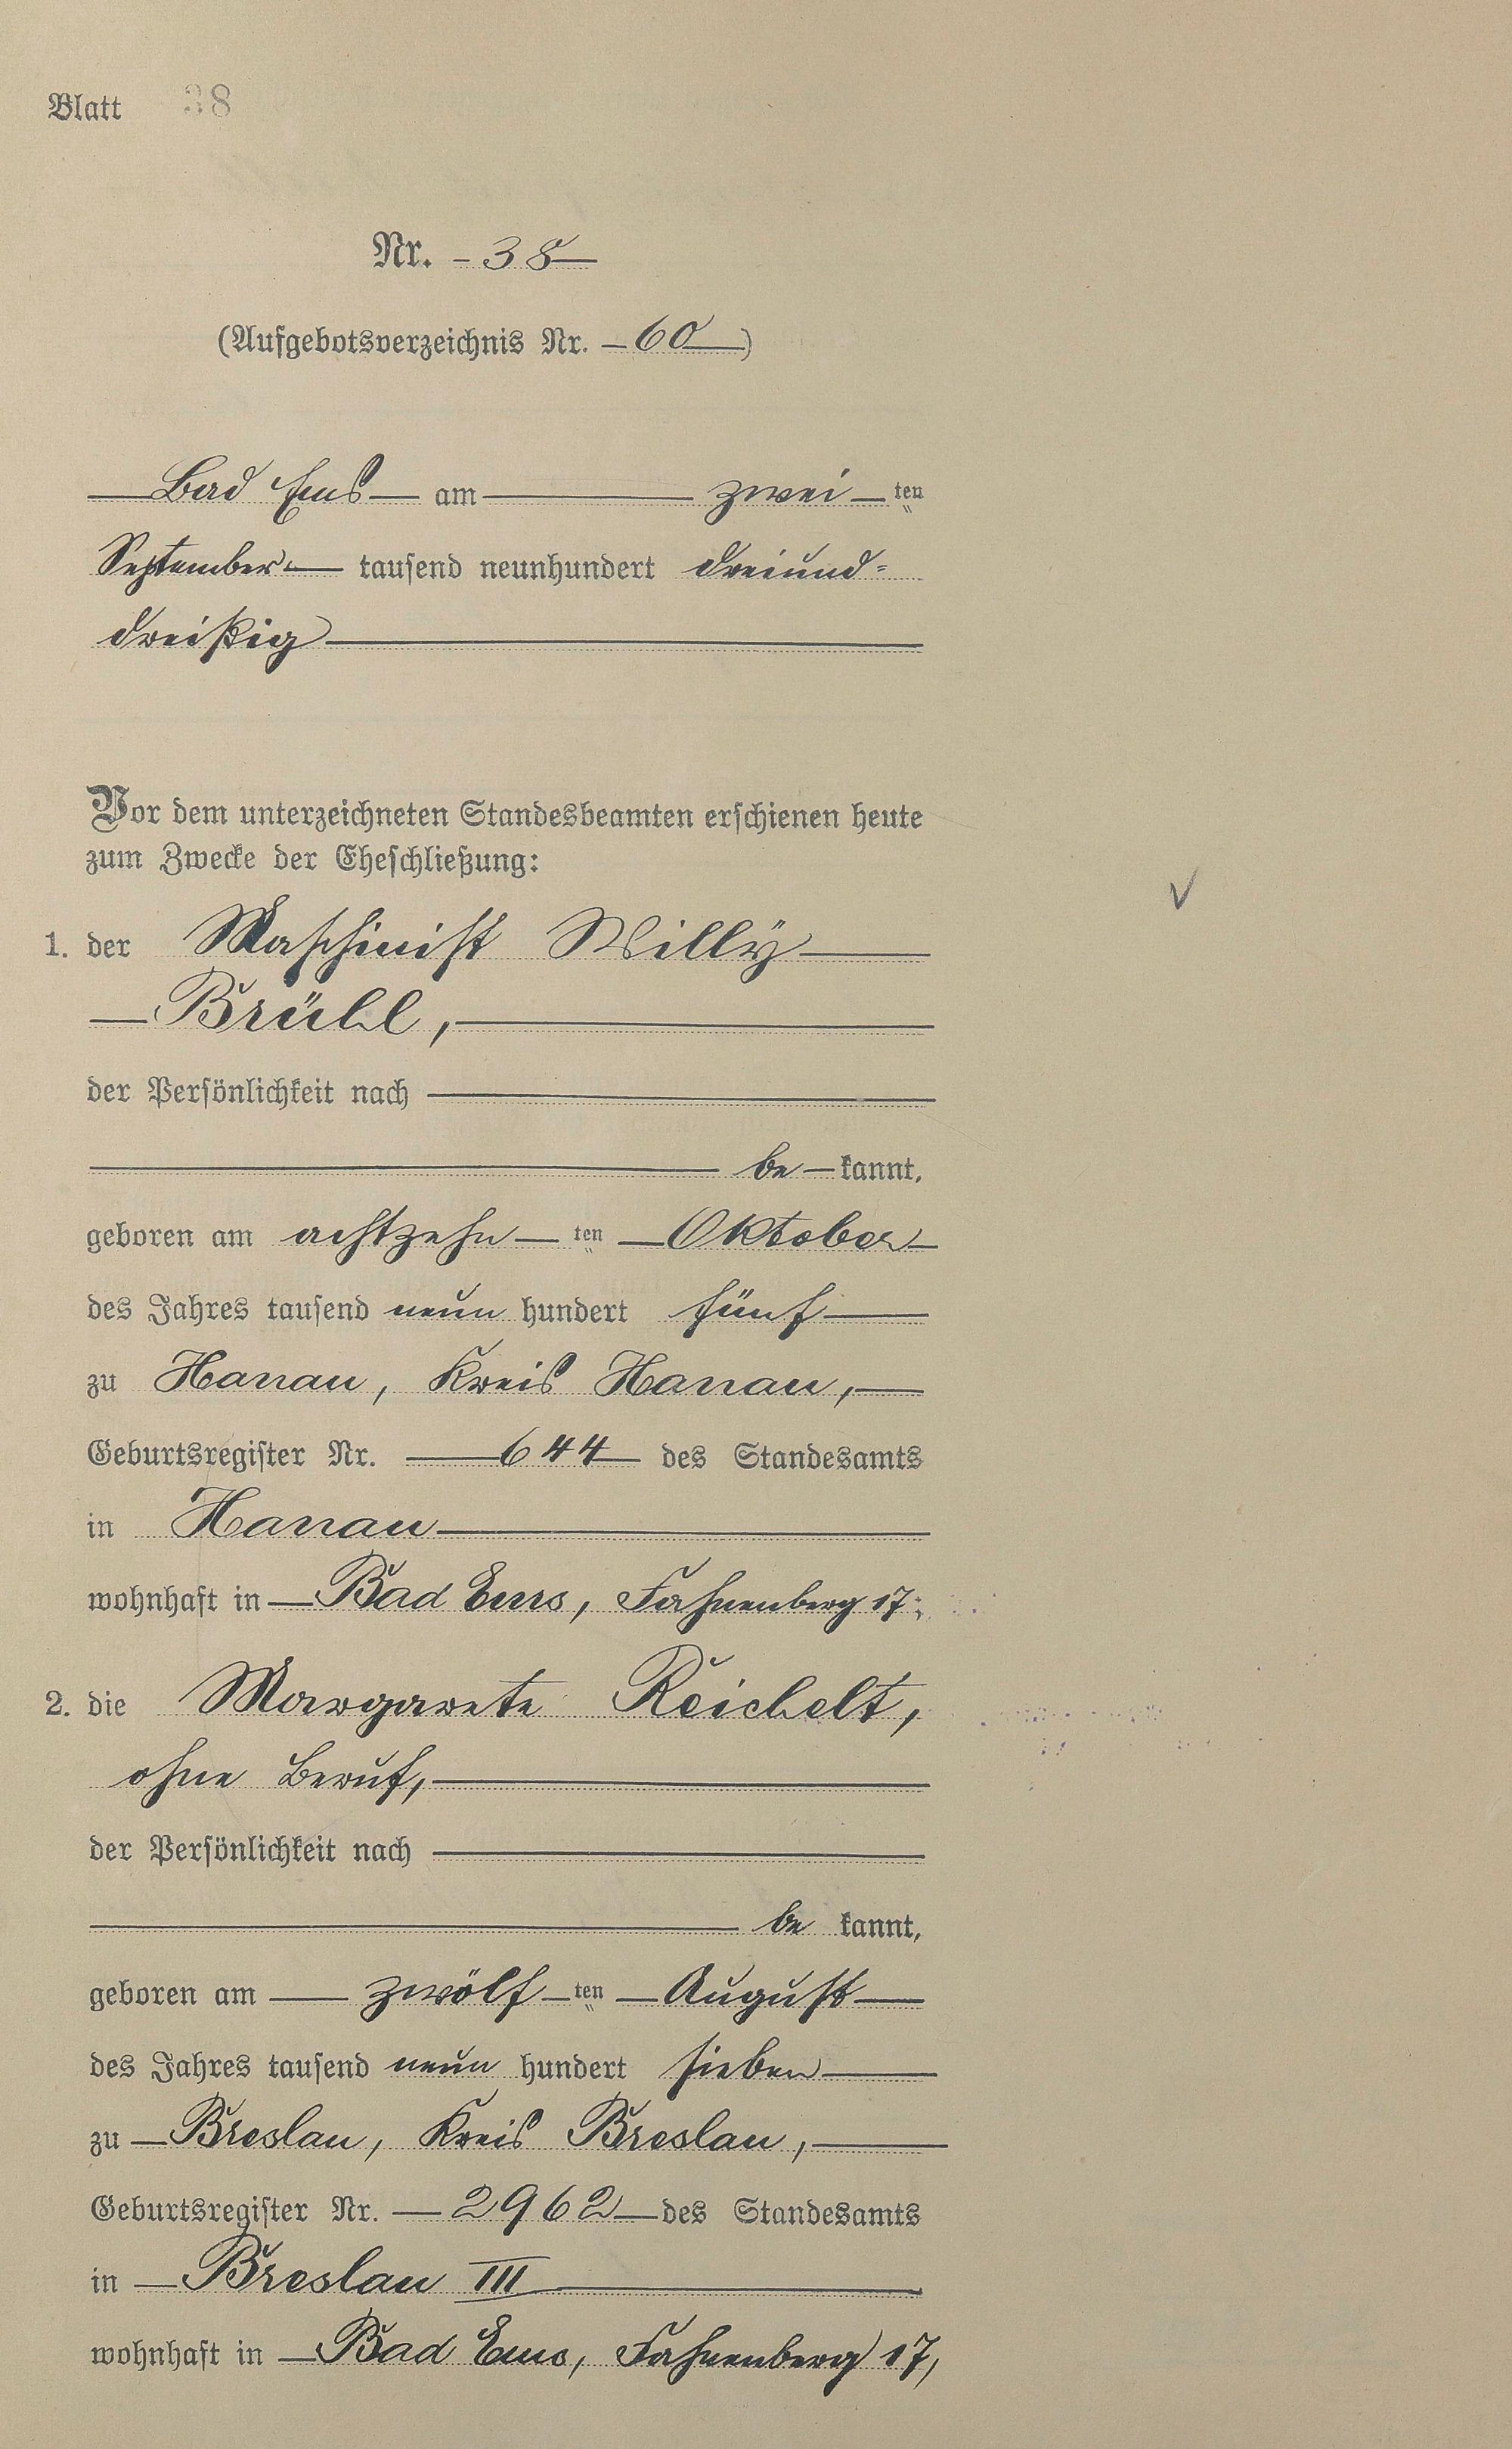 Blatt 38
Nr. 38
(Aufgebotsverzeichnis Nr. 60)
Bad Ems am zwei ten
September tausend neunhundert dreiund=
dreißig
Vor dem unterzeichneten Standesbeamten erschienen heute
zum Zwecke der Eheschließung:
1. der Maschinist Willy
Brühl,
der Persönlichkeit nach
be kannt,
geboren am achtzehn ten Oktober
des Jahres tausend neun hundert fünf
zu Hanau, Kreis Hanau,
Geburtsregister Nr. 644 des Standesamts
in Hanau
wohnhaft in Bad Ems, Fahnenberg 17;
2. die Margarete Reichelt,
ohne Beruf,
der Persönlichkeit nach
be kannt,
geboren am zwölf ten August
des Jahres tausend neun hundert sieben
zu Breslau, Kreis Breslau,
Geburtsregister Nr. 2962 des Standesamts
in Breslau III
wohnhaft in Bad Ems, Fahnenberg 17,